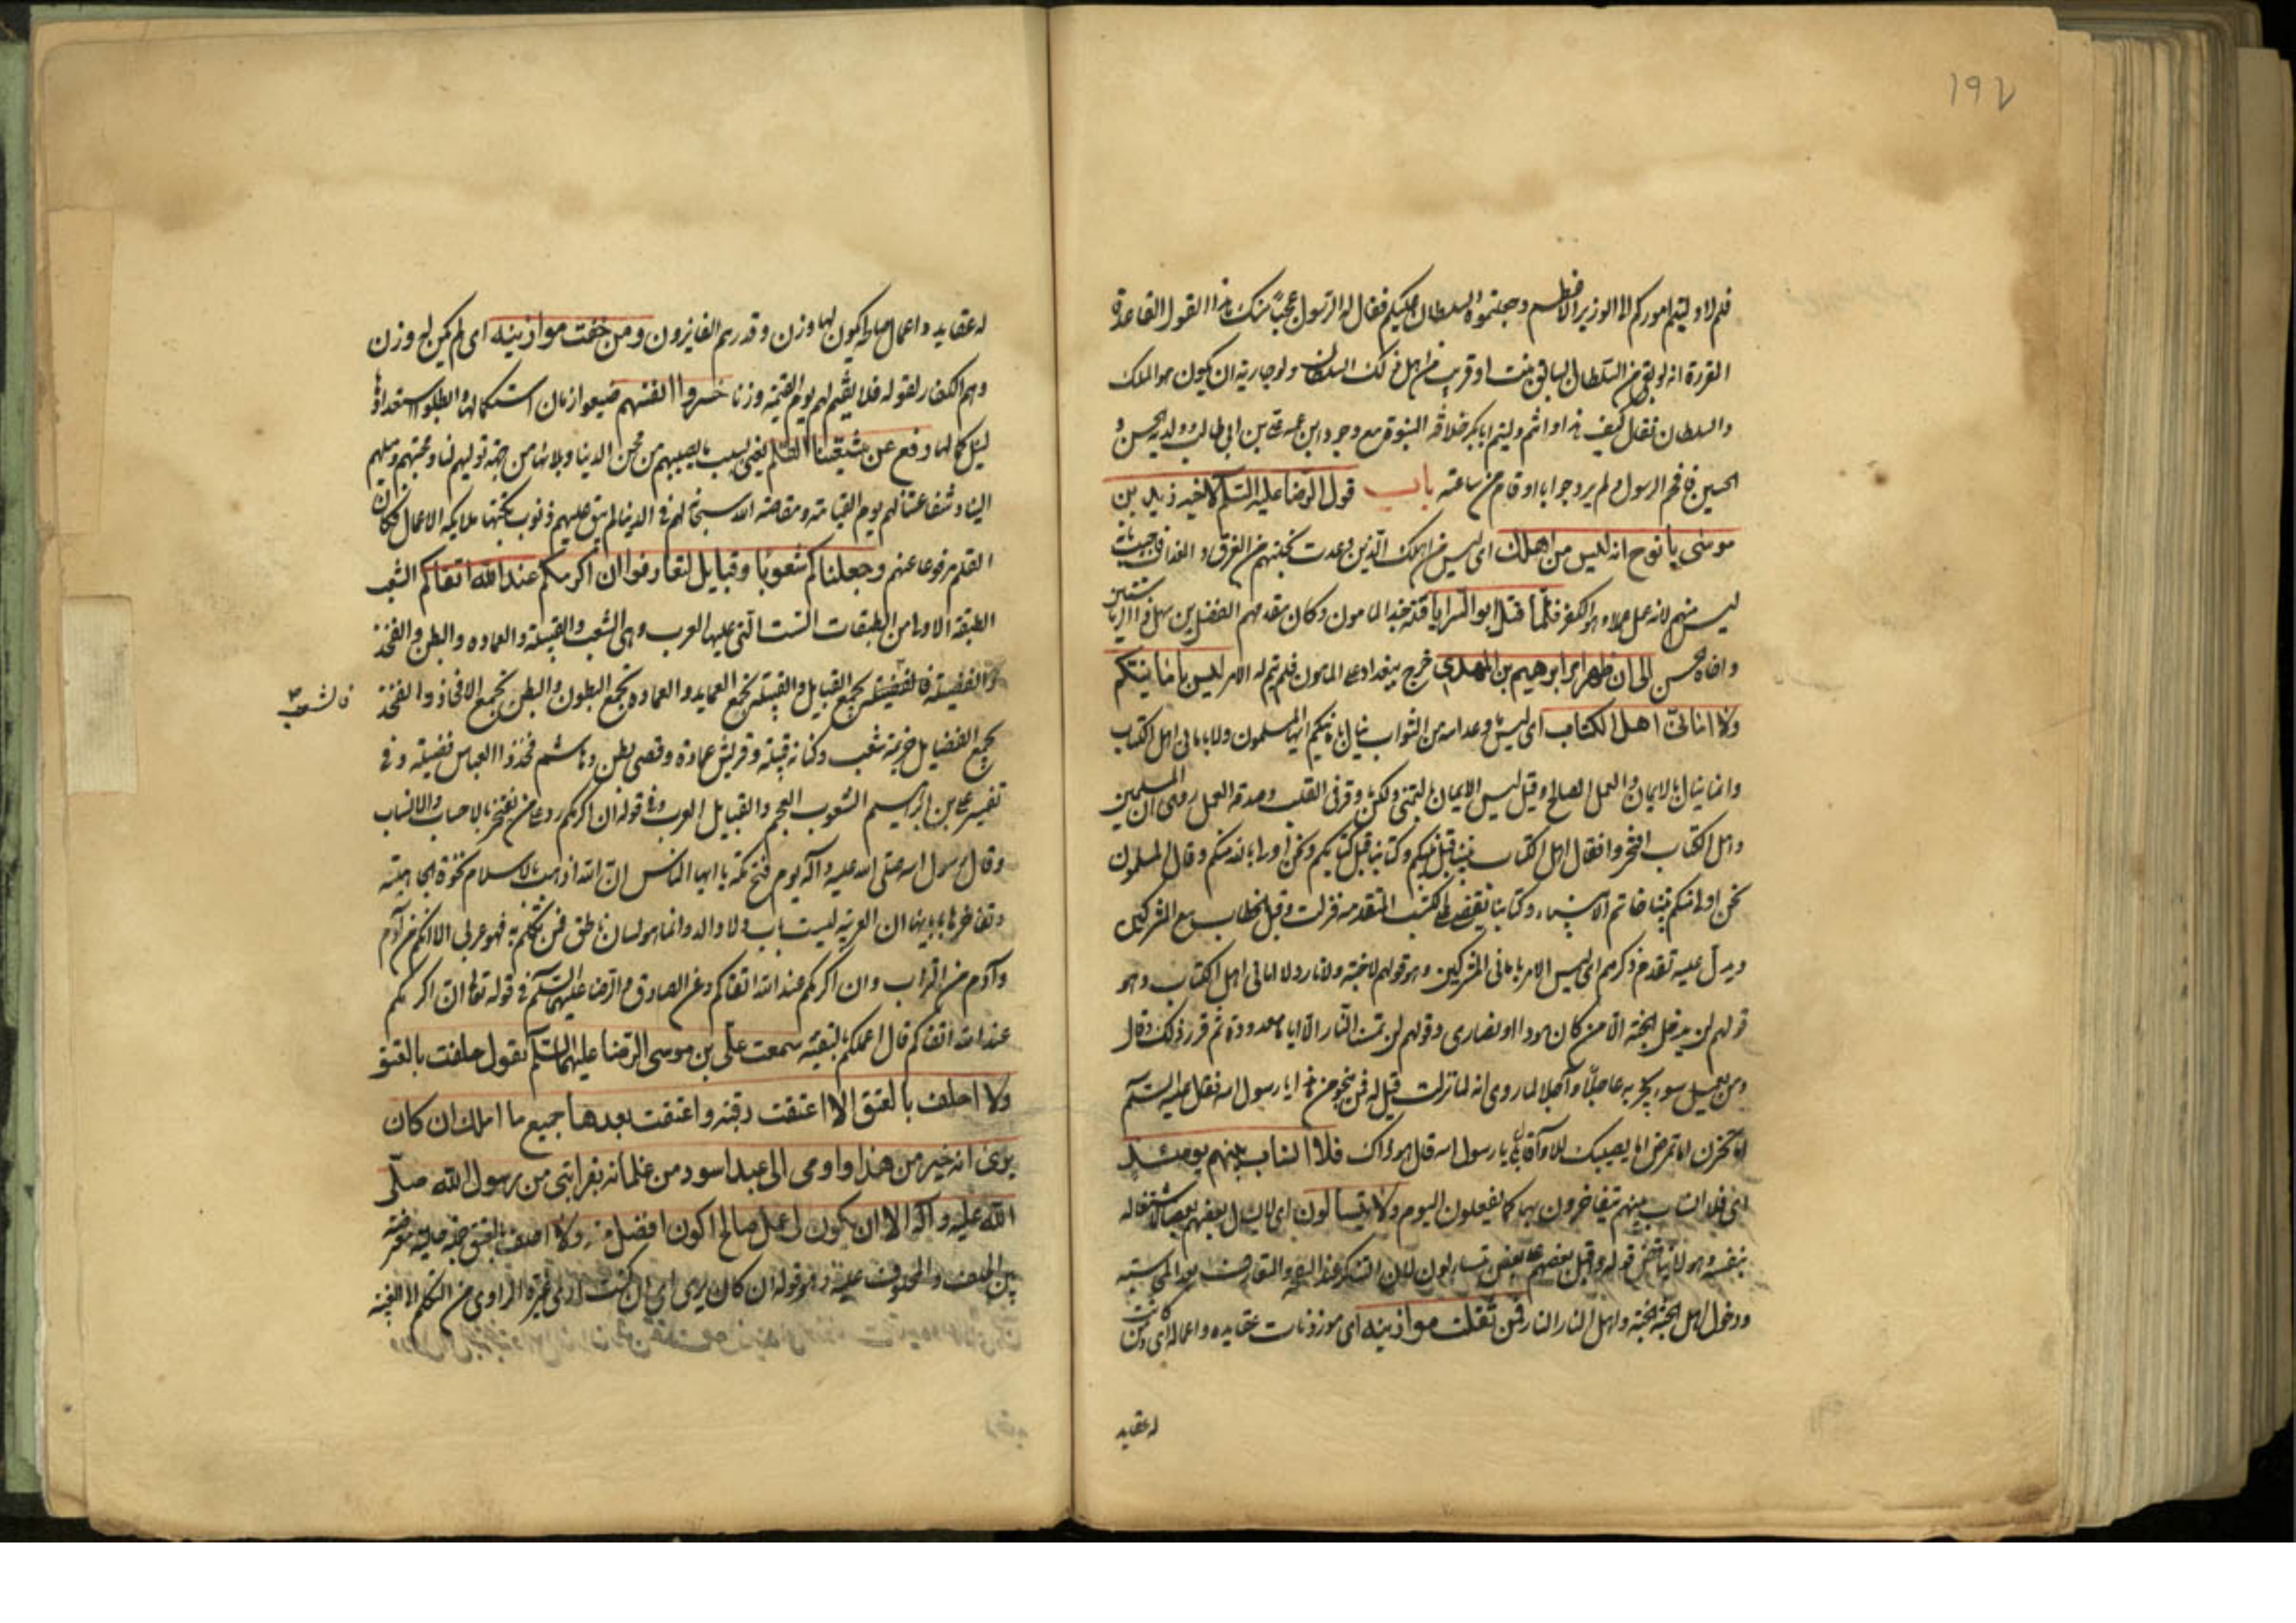 ١٩٢
فلم لا وليتم اموركم الا الوزير الاعظم وجعلتموه السلطان عليكم فقال له الرسول عجبا منك هذا القول القاعدة
المقررة انه لو بقى من السلطان السابق بنت او قريب من اهل ذلك السلطان ولو جارية ان يكون هو الملك
والسلطان فقال كيف هذا وانتم وليتم ابا بكر خلافة النبوة مع وجود ابن عمه علي بن ابي طالب وولديه الحسن و
الحسين فافحم الرسول ولم يرد جوابا وقام من ساعته باب قول الرضا عليه السلام لاخيه زيد بن
موسى يا نوح انه ليس من اهلك اى ليس من اهلك الذين وعدت بنجاتهم من الغرق
ليس منهم لانه عمل عملا وهو الكفر فلما قتل ابو السرايا قتله جند المامون وكان مقدمهم الفضل بن سهل ذو الرياستين
الى ان ظهر ابراهيم بن المهدي خرج ببغداد على المامون فلم يتم له الامر ليس بامانيكم
ولا امانى اهل الكتاب اى ليس ما وعد الله من الثواب ينال بامانيكم ايها المسلمون ولا بامانى اهل الكتاب
وانما ينال بالايمان والعمل الصالح وقيل ليس الايمان بالتمنى ولكن ما وقر فى القلب وصدقه العمل روى ان المسلمين
واهل الكتاب افتخروا فقال اهل الكتاب نبينا قبل نبيكم وكتابنا قبل كتابكم ونحن اولى بالله منكم وقال المسلمون
نحن اولى منكم نبينا خاتم الانبياء وكتابنا يقضى على الكتب المتقدمة فنزلت وقيل الخطاب مع المشركين
ويدل عليه تقدم ذكرهم اى ليس الامر بامانى المشركين وهو قولهم لا جنة ولا نار ولا امانى اهل الكتاب وهو
قولهم لن يدخل الجنة الا من كان هودا او نصارى وقولهم لن تمسنا النار الا اياما معدودة ثم قرر ذلك وقال
ومن يعمل سوء يجز به عاجلا وآجلا لما روى انه لما نزلت قيل له فمن ينجو من هذا يا رسول الله فقال عليه السلام
اما تحزن اما تمرض اما يصيبك اللاواء قال بلى يا رسول الله قال هو ذاك فلا انساب بينهم يومئذ
اى فلا انساب بينهم يتفاخرون بها كما يفعلون اليوم ولا يتسالون اى لا يسال بعضهم بعضا لاشتغاله
بنفسه وهو لا يناقض قوله واقبل بعضهم على بعض يتساءلون لان
ودخول اهل الجنة الجنة واهل النار النار فمن ثقلت موازينه اى موزونات عقايده واعماله اى ومن كانت
له عقايد
له عقايد واعمال صالحة يكون لها وزن وقدر هم الفايزون ومن خفت موازينه اى لم يكن له وزن
وهم الكفار لقوله فلا نقيم لهم يوم القيمة وزنا خسروا انفسهم ضيعوا زمان استكمالها وابطلوا استعدادها
لنيل كمالها رفع عن شيعتنا القلم يعنى بسبب ما يصيبهم من محن الدنيا وبلائها من جهة توليهم لنا ومحبتهم وميلهم
الينا وشفاعتنا لهم يوم القيامة ومقاصة الله سبحانه لهم فى الدنيا لم يبق عليهم ذنوب تكتبها ملايكة الاعمال فكان
القلم مرفوعا عنهم وجعلناكم شعوبا وقبايل لتعارفوا ان اكرمكم عند الله اتقاكم الشعب
الطبقة الاولى من الطبقات الست التى عليها العرب وهى الشعب والقبيلة والعماره والبطن والفخذ
والفصيلة فالشعب يجمع القبايل والقبيلة تجمع العماير والعماره تجمع البطون والبطن يجمع الافخاذ والفخذ
فالشعب
يجمع الفصايل خزيمة شعب وكنانة قبيلة وقريش عمارة وقصى بطن وهاشم فخذ والعباس فصيلة وفى
تفسير على بن ابراهيم الشعوب العجم والقبايل العرب وفى قوله ان اكرمكم رد على من يفتخر بالاحساب والانساب
وقال رسول الله صلى الله عليه وآله يوم فتح مكة يا ايها الناس ان الله اذهب بالاسلام نخوة الجاهلية
وتفاخرها بابائها ان العربية ليست باب ولا والد وانما هو لسان ناطق فمن تكلم به فهو عربى الا انكم من آدم
وآدم من التراب وان اكرمكم عند الله اتقاكم وعن الصادق والرضا عليهما السلام فى قوله تعالى ان اكرمكم
عند الله اتقاكم قال اعملكم بالتقية سمعت على بن موسى الرضا عليهما السلام يقول حلفت بالعتق
ولا احلف بالعتق الا اعتقت رقبة واعتقت بعدها جميع ما املك ان كان
يرى انه خير من هذا واومى الى عبد اسود من غلمانه بقرابتى من رسول الله صلى
الله عليه وآله الا ان يكون لى عمل صالح اكون افضل منه ولا احلف بالعتق جملة حالية معترضة
بين الحلف والمحلوف عليه وهو قوله ان كان يرى اى ان كنت ارى غيره الراوى من التكلم الى الغيبة